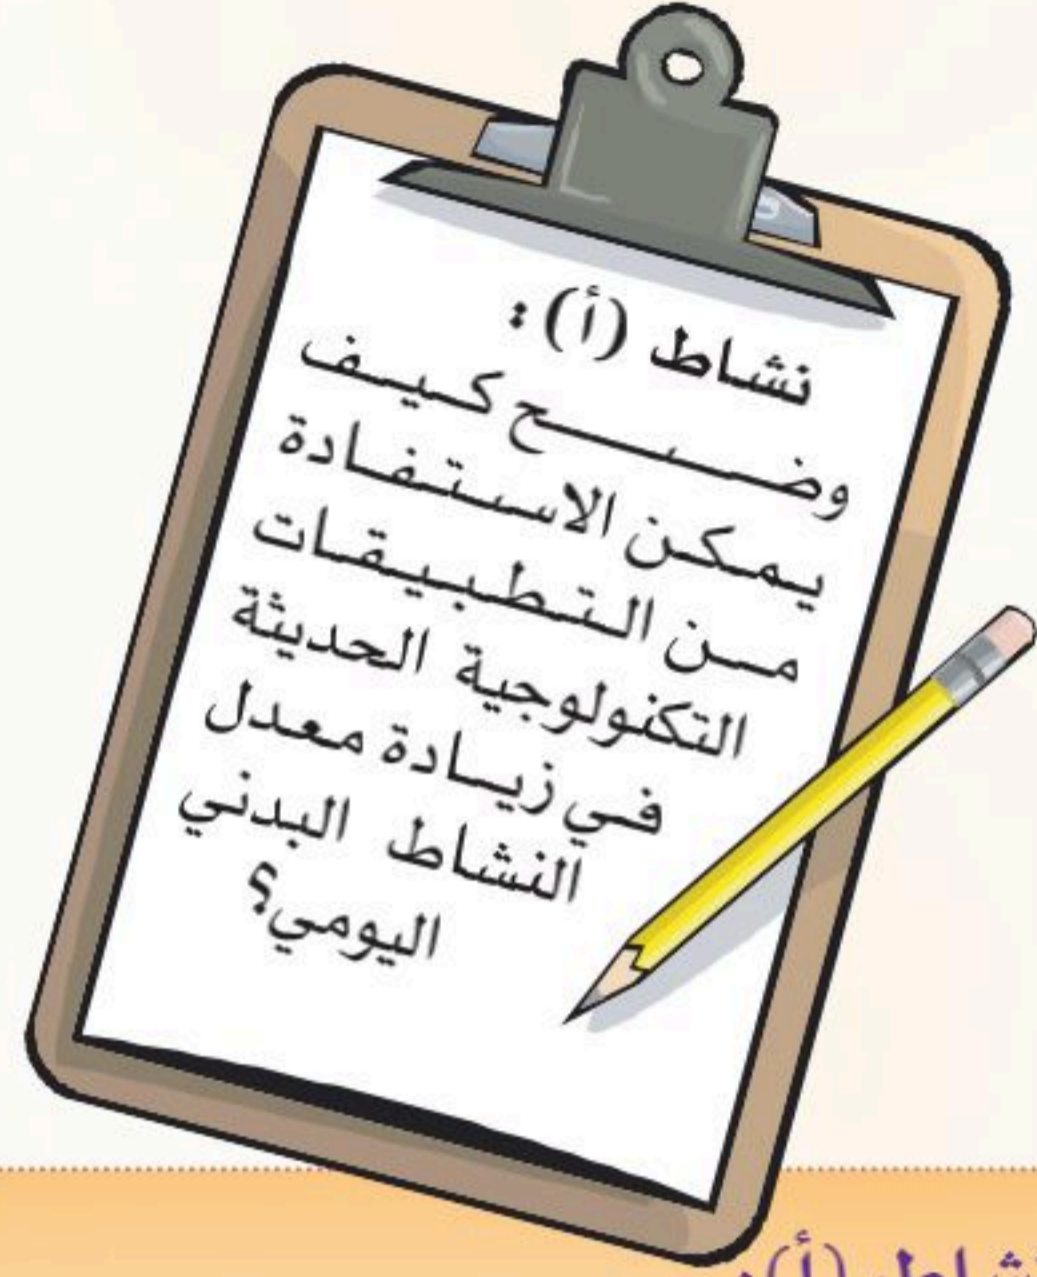 نشاط (أ):
وضح كيف
يمكن الاستفادة
من التطبيقات
التكنولوجية الحديثة
في زيادة معدل
النشاط البدني
اليومي؟
نشاط (أ):